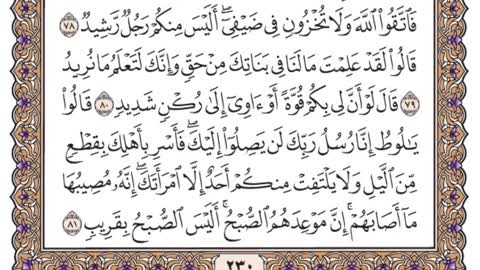 فَٱتَّقُوا۟ ٱللَّهَ وَلَا تُخْزُونِ فِى ضَيْفِىٓ ۖ أَلَيْسَ مِنكُمْ رَجُلٌ رَّشِيدٌ ٧٨
قَالُوا۟ لَقَدْ عَلِمْتَ مَا لَنَا فِى بَنَاتِكَ مِنْ حَقٍّ وَإِنَّكَ لَتَعْلَمُ مَا نُرِيدُ
٧٩ قَالَ لَوْ أَنَّ لِى بِكُمْ قُوَّةً أَوْ ءَاوِىٓ إِلَىٰ رُكْنٍ شَدِيدٍ ٨٠ قَالُوا۟
يَٰلُوطُ إِنَّا رُسُلُ رَبِّكَ لَن يَصِلُوٓا۟ إِلَيْكَ ۖ فَأَسْرِ بِأَهْلِكَ بِقِطْعٍ
مِّنَ ٱلَّيْلِ وَلَا يَلْتَفِتْ مِنكُمْ أَحَدٌ إِلَّا ٱمْرَأَتَكَ ۖ إِنَّهُۥ مُصِيبُهَا
مَآ أَصَابَهُمْ ۚ إِنَّ مَوْعِدَهُمُ ٱلصُّبْحُ ۚ أَلَيْسَ ٱلصُّبْحُ بِقَرِيبٍ ٨١
٢٣٠